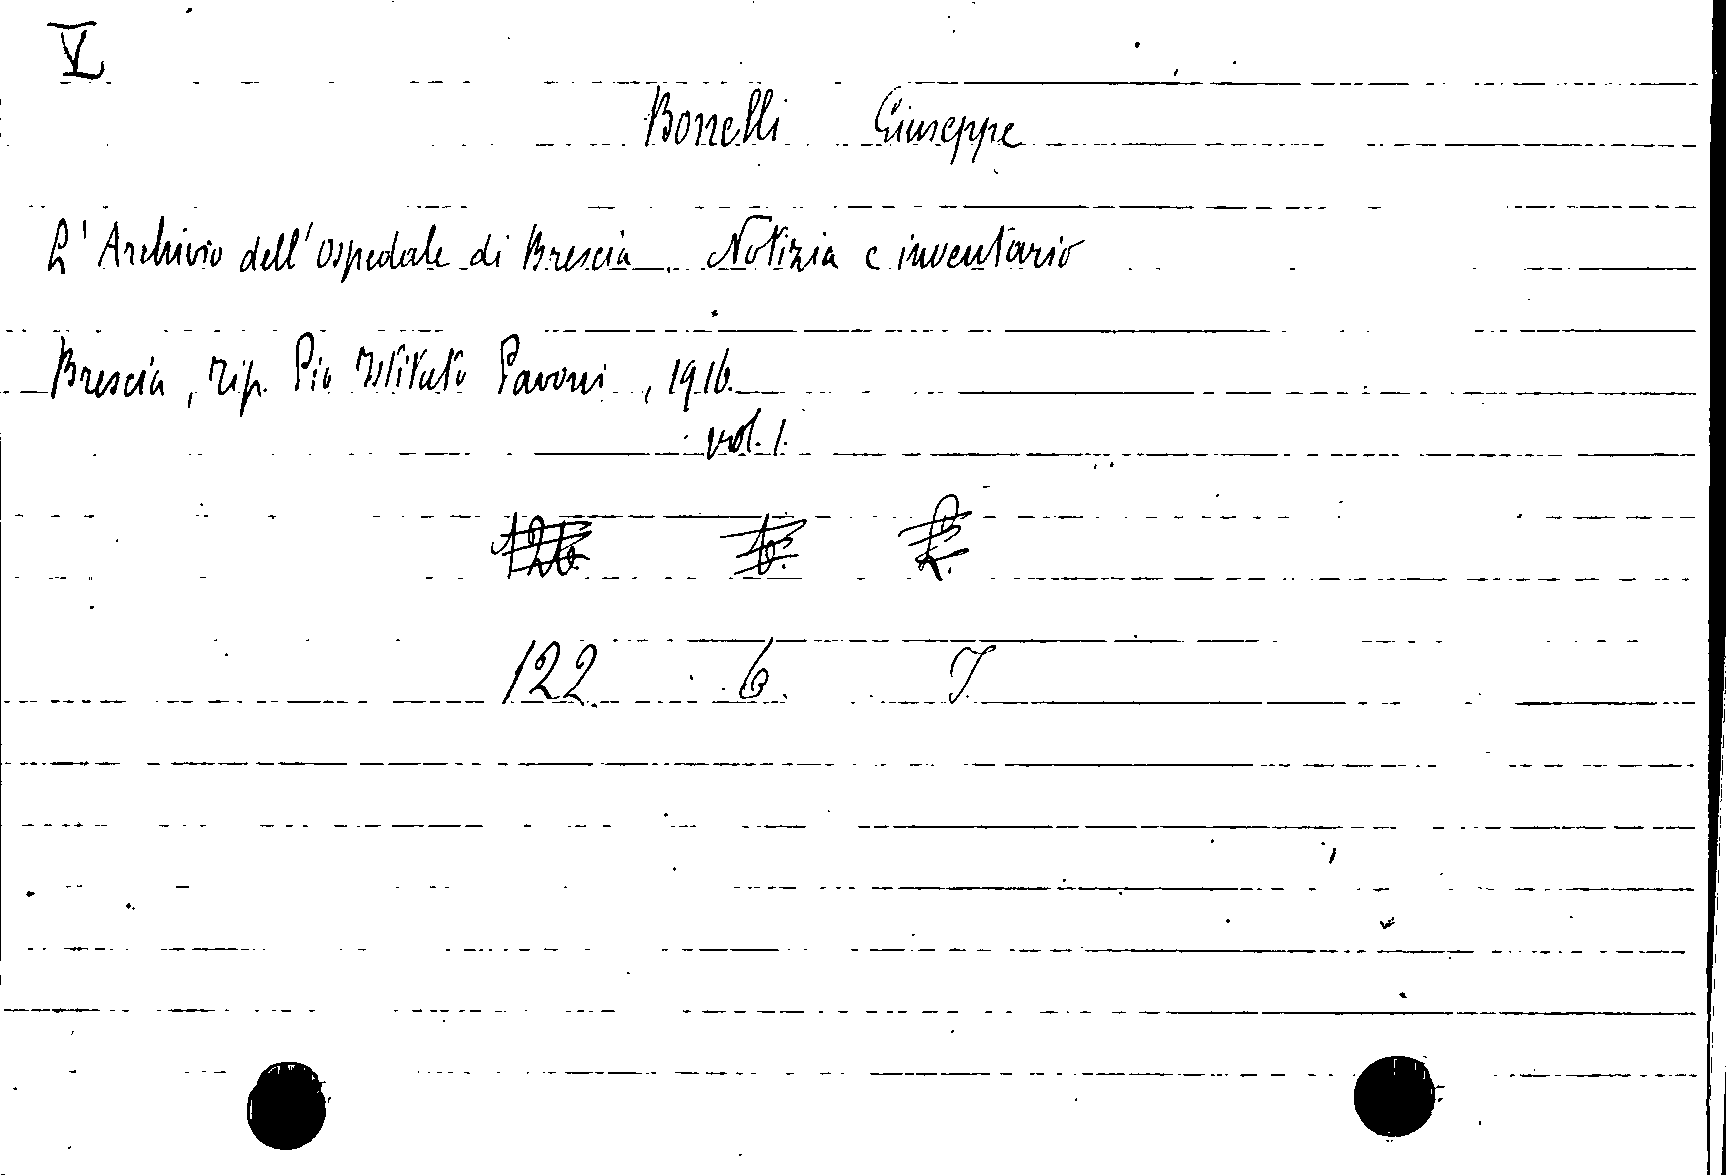 V
Bonelli Giuseppe
L'Archivio dell'Ospedale di Brescia. Notizia e inventario
Brescia, tip. Pio Istituto Pavoni, 1916.
vol. 1.
122. 6. I.